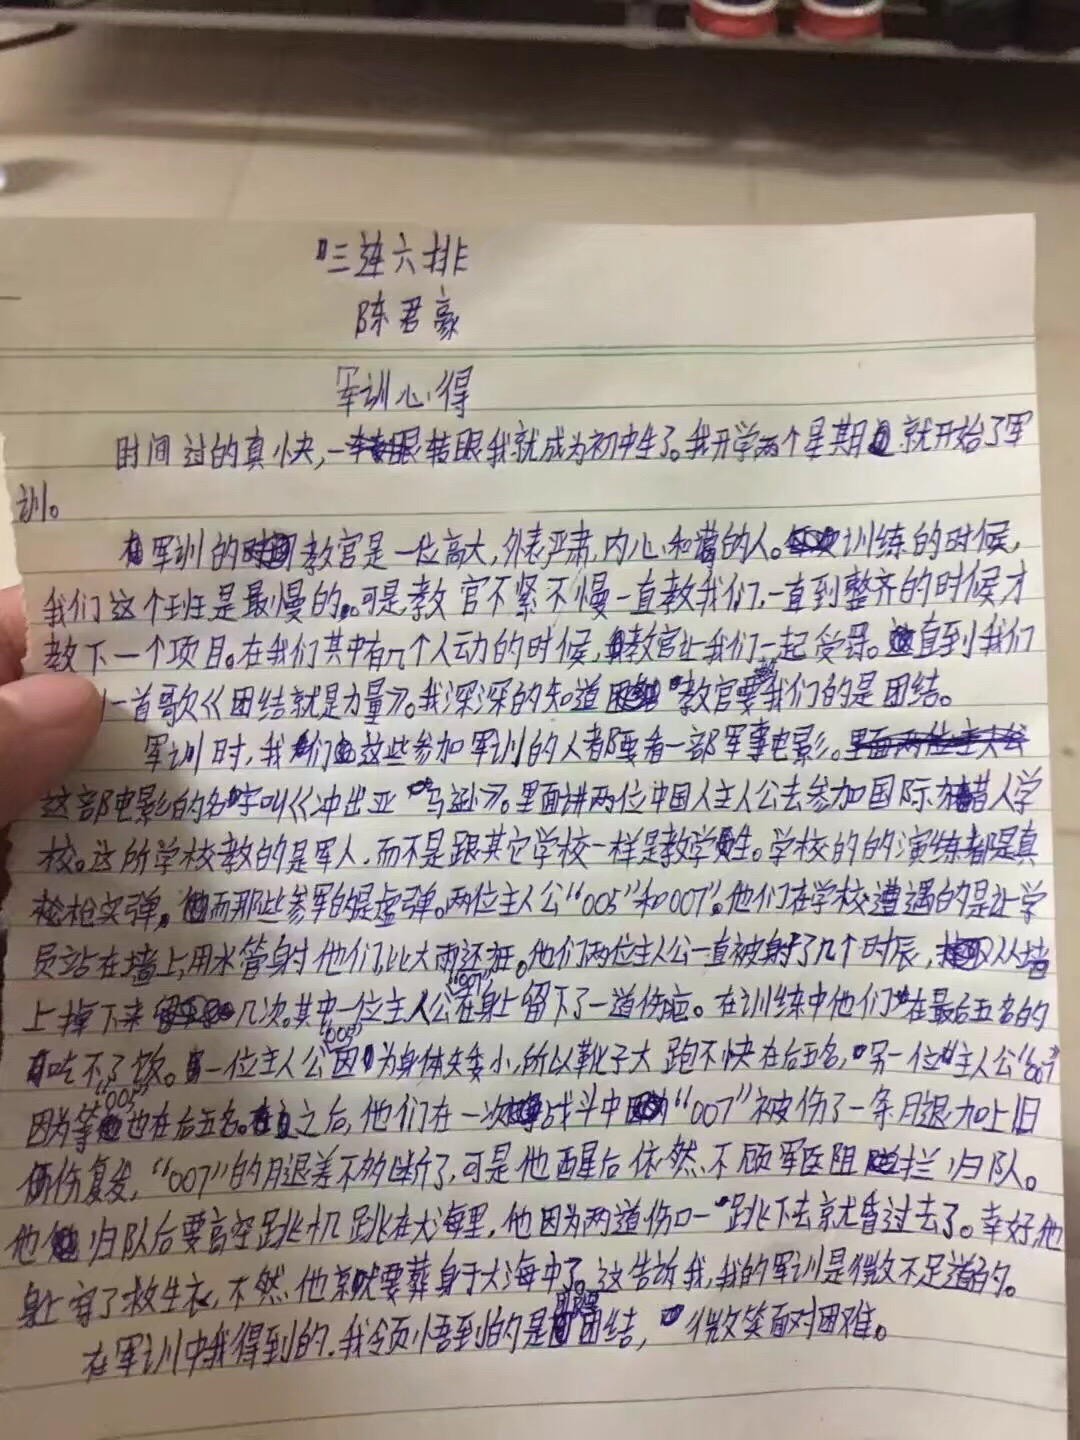 三连六排
陈君豪
军训心得
时间过的真快,一转眼我就成为初中生了。我开学两个星期就开始了军
训。
军训的教官是一位高大,外表严肃,内心和谐的人。训练的时候,
我们这个班是最慢的。可是教官不紧不慢一直教我们,一直到整齐的时候才
教下一个项目。在我们其中有几个人动的时候,教官让我们一起受罚。直到我们
一首歌《团结就是力量》。我深深的知道教官要教我们的是团结。
军训时,我们这些参加军训的人都要看一部军事电影。
这部电影的名字叫《冲出亚马逊》。里面讲两位中国人主人公去参加国际猎人学
校。这所学校教的是军人,而不是跟其它学校一样是教学生。学校的的演练都是真
枪实弹。而那些参军的是虚弹。两位主人公“005”和007”。他们在学校遭遇的是让学
员站在墙上,用水管射他们,比大雨还狂。他们两位主人公一直被射了几个时辰,从墙
上掉下来几次。其中一位主人公“007”在身上留下了一道伤疤。在训练中他们在最后五名的
吃不了饭。一位主人公“005”因为身体矮小,所以靴子大跑不快在后五名,另一位主人公“007”
因为等“005”也在后五名。之后,他们在一次战斗中“007”被伤了一条腿加上旧
伤复发,“007”的腿差不多断了,可是他醒后依然不顾军医阻拦归队。
他归队后要高空跳机跳在大海里,他因为两道伤口一跳下去就昏过去了。幸好,他
身上有了救生衣,不然他就要葬身于大海中了。这告诉我,我的军训是微不足道的。
在军训中我得到的,我领悟到的是团结,微笑面对困难。